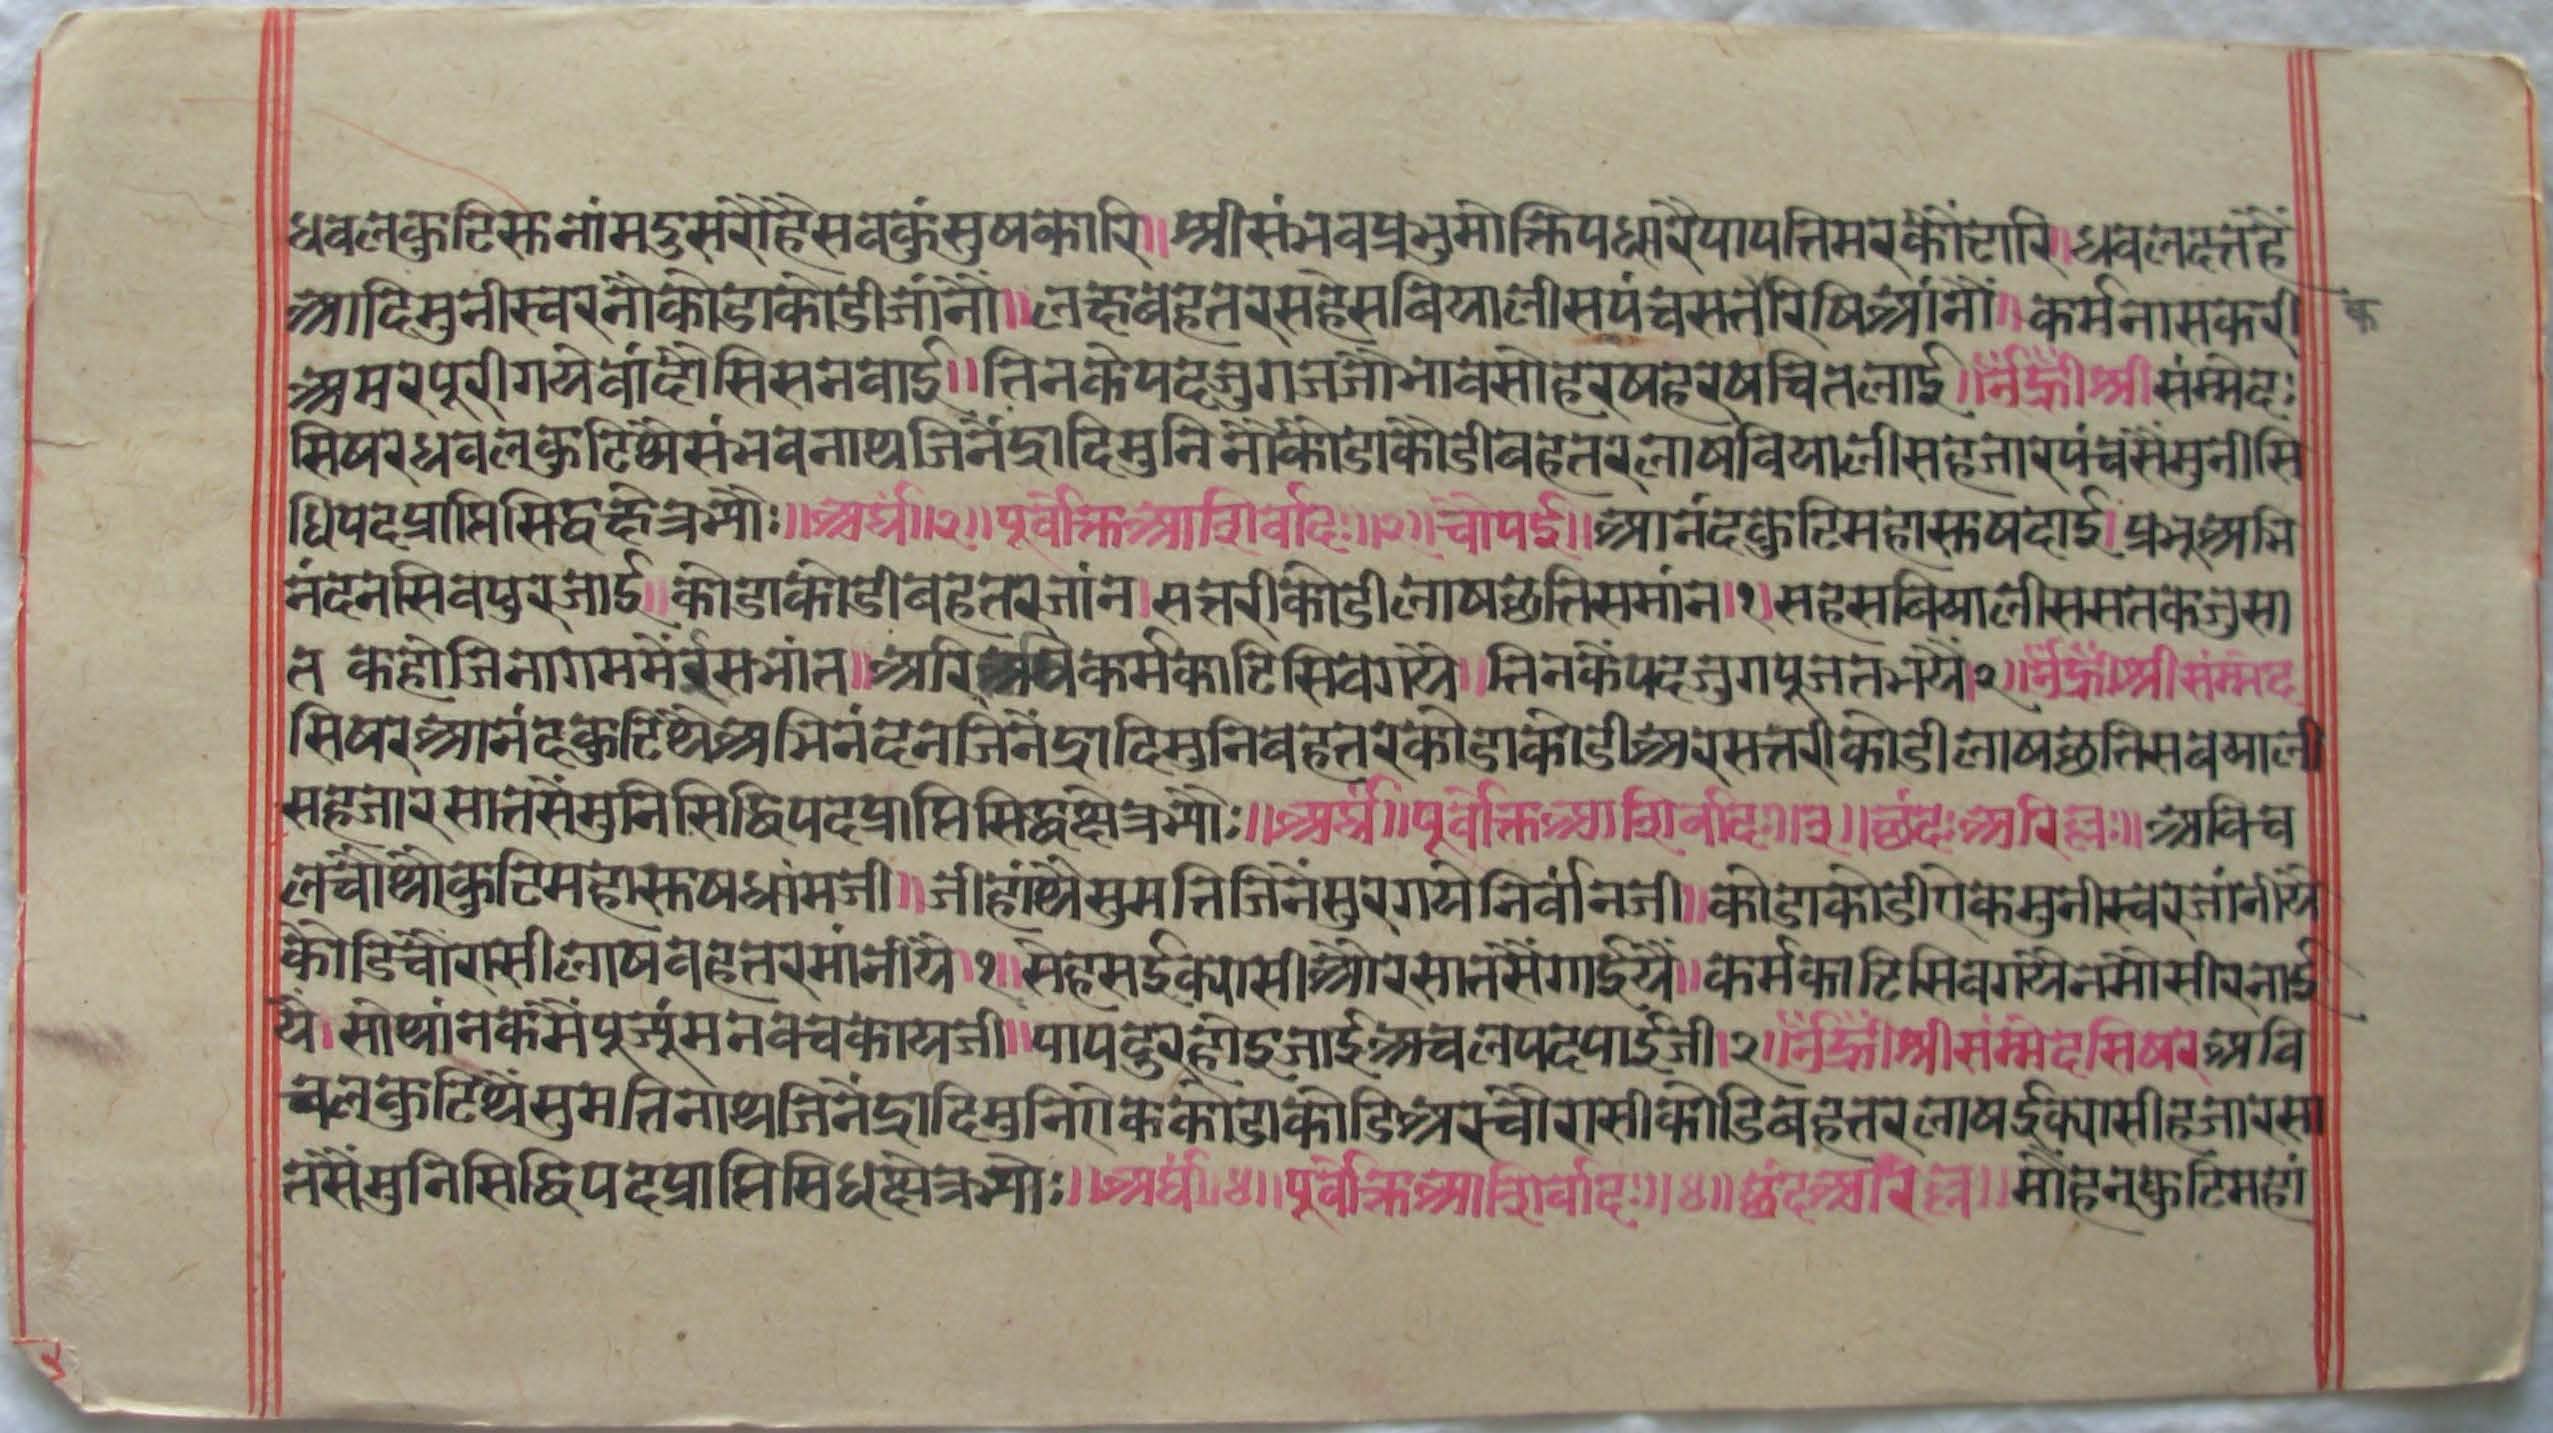 धवलकुटिरूनांमदुसरौहैसवकुंसुषकारि॥श्रीसंभवप्रभुमोक्तिपधारैपापतिमरकौंटारि॥धवलदतहैं
आदिमुनीस्वरनौकोडाकोडीजांनौं॥लक्षबहतरसहेसबियालीसपंचसतैरिषिआंनौं॥कर्मनासकरी
क
अमरपूरीगयेवांदौसिसनवाई॥तिनकेपदजुगजजौभावसोहरषहरषचितलाई॥ॐह्रीश्रीसंम्मेदः
सिषरधवलकुटिथैसंभवनाथजिनैंद्रादिमुनिनौकोडाकोडीबहतरलाषवियालीसहजारपंचसैंमुनीसि
धिपदप्राप्तिसिद्धक्षेत्रभ्योः॥अर्घं॥२॥पूर्वोक्तआशिर्वादः॥२॥चौपई॥आनंदकुटिमहारूषदाई।प्रभूअभि
नंदनसिवपुरजाई॥कोडाकोडीबहतरजांन।सत्तरीकोडीलाषछत्तिसमांन।१।सहसबियालीससतकजुसा
त कहौजिनागममैंईसभांत॥अरिकर्मकाटिसिवगये॥तिनकैंपदजुगपूजतभयै।२॥ॐह्रीश्रीसंम्मेद
सिषरआनंदकुटिथैअभिनंदनजिनेंद्रादिमुनिबहतरकोडाकोडीअरसत्तरीकोडीलाषछत्तिसवयाली
सहजारसातसैंमुनिसिद्धिपदप्राप्तिसिद्धक्षेत्रभ्योः॥अर्घं॥पूर्वोक्तआशिर्वादः॥३॥छंदःअरिल्लः॥अविच
लचौथौकुटिमहारूषधांमजी॥जीहांथैसुमतिजिनेंसुरगयेनिर्वांनजी॥कोडाकोडीऐकमुनीस्वरजांनीयै
कोडिचौरासीलाषवहत्तरमांनीयै।१॥सेहसईक्यासीऔरसातसैंगाईयैं॥कर्मकाटिसिवगयेनमौसीरनाई
यै।सोथांनकमैंपूज्यूंमनवचकायजी॥पापदुरहोइजाईअचलपदपाईजी।२॥ॐह्रीश्रीसंम्मेदसिषरअवि
चलकुटिथैंसुमतिनाथजिनेंद्रादिमुनिऐककोडाकोडिअरचौरासीकोडिबहत्तरलाषईक्यासीहजारसा
तसैंमुनिसिद्धिपदप्राप्तिसिधक्षेत्रभ्योः॥अर्घं॥४॥पूर्वोक्तआशिर्वादः॥४॥छंदअरिल्ल॥मोंहनकुटिमहां